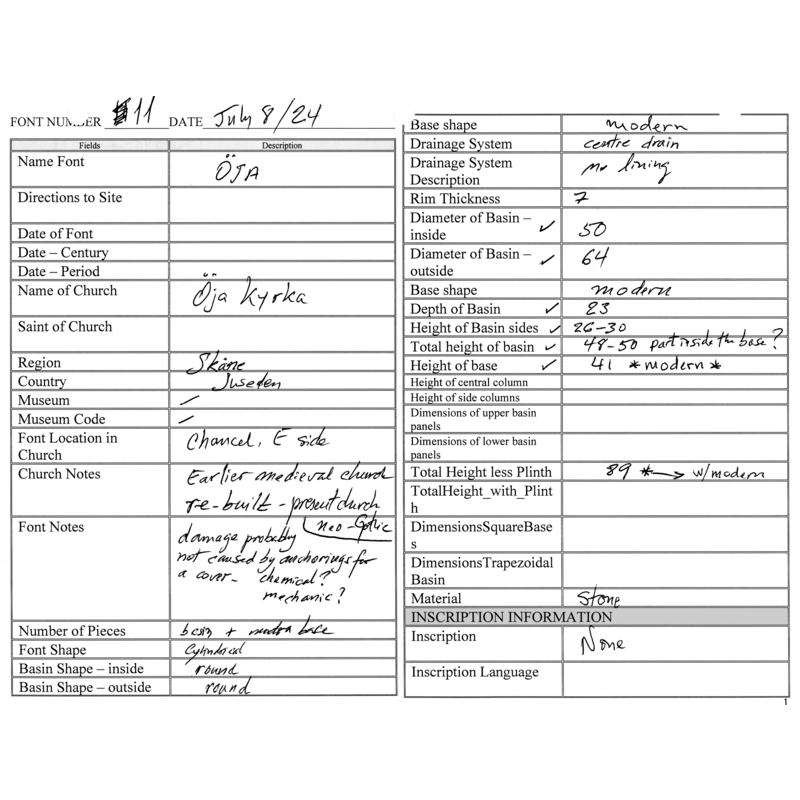 FONT NUMBER 11 DATE July 8/24
Fields Description
Name Font ÖJA
Directions to Site
Date of Font
Date – Century
Date – Period
Name of Church Öja Kyrka
Saint of Church
Region Skåne
Country Sweden
Museum /
Museum Code /
Font Location in
Church
Chancel, E side
Church Notes Earlier medieval church
re-built - present church
neo-Gothic
Font Notes damage probably
not caused by anchorings for
a cover- chemical?
mechanic?
Number of Pieces basin + modern base
Font Shape Cylindrical
Basin Shape – inside round
Basin Shape – outside round
Base shape modern
Drainage System centre drain
Drainage System
Description
no lining
Rim Thickness 7
Diameter of Basin –
inside ✓ 50
Diameter of Basin –
outside ✓ 64
Base shape modern
Depth of Basin ✓ 23
Height of Basin sides ✓ 26-30
Total height of basin ✓ 48-50 part inside the base?
Height of base ✓ 41 *modern*
Height of central column
Height of side columns
Dimensions of upper basin
panels
Dimensions of lower basin
panels
Total Height less Plinth 89 *→ w/modern
TotalHeight_with_Plint
h
DimensionsSquareBase
s
DimensionsTrapezoidal
Basin
Material Stone
INSCRIPTION INFORMATION
Inscription None
Inscription Language
1